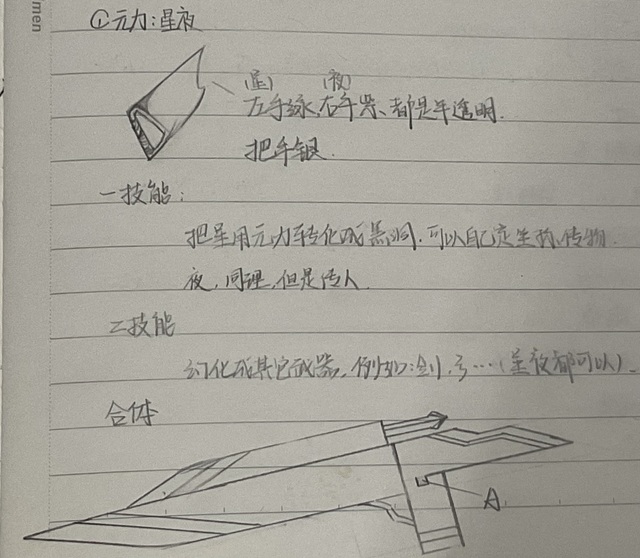 men
①元力:星夜
(星) (夜)
左手绿,右手黑、都是半透明.
把手银.
一技能:
把星用元力转化成黑洞.可以自己定坐标,传物.
夜,同理,但是传人.
二技能
幻化成其它武器,例如:剑,弓…(星夜都可以).
合体
A